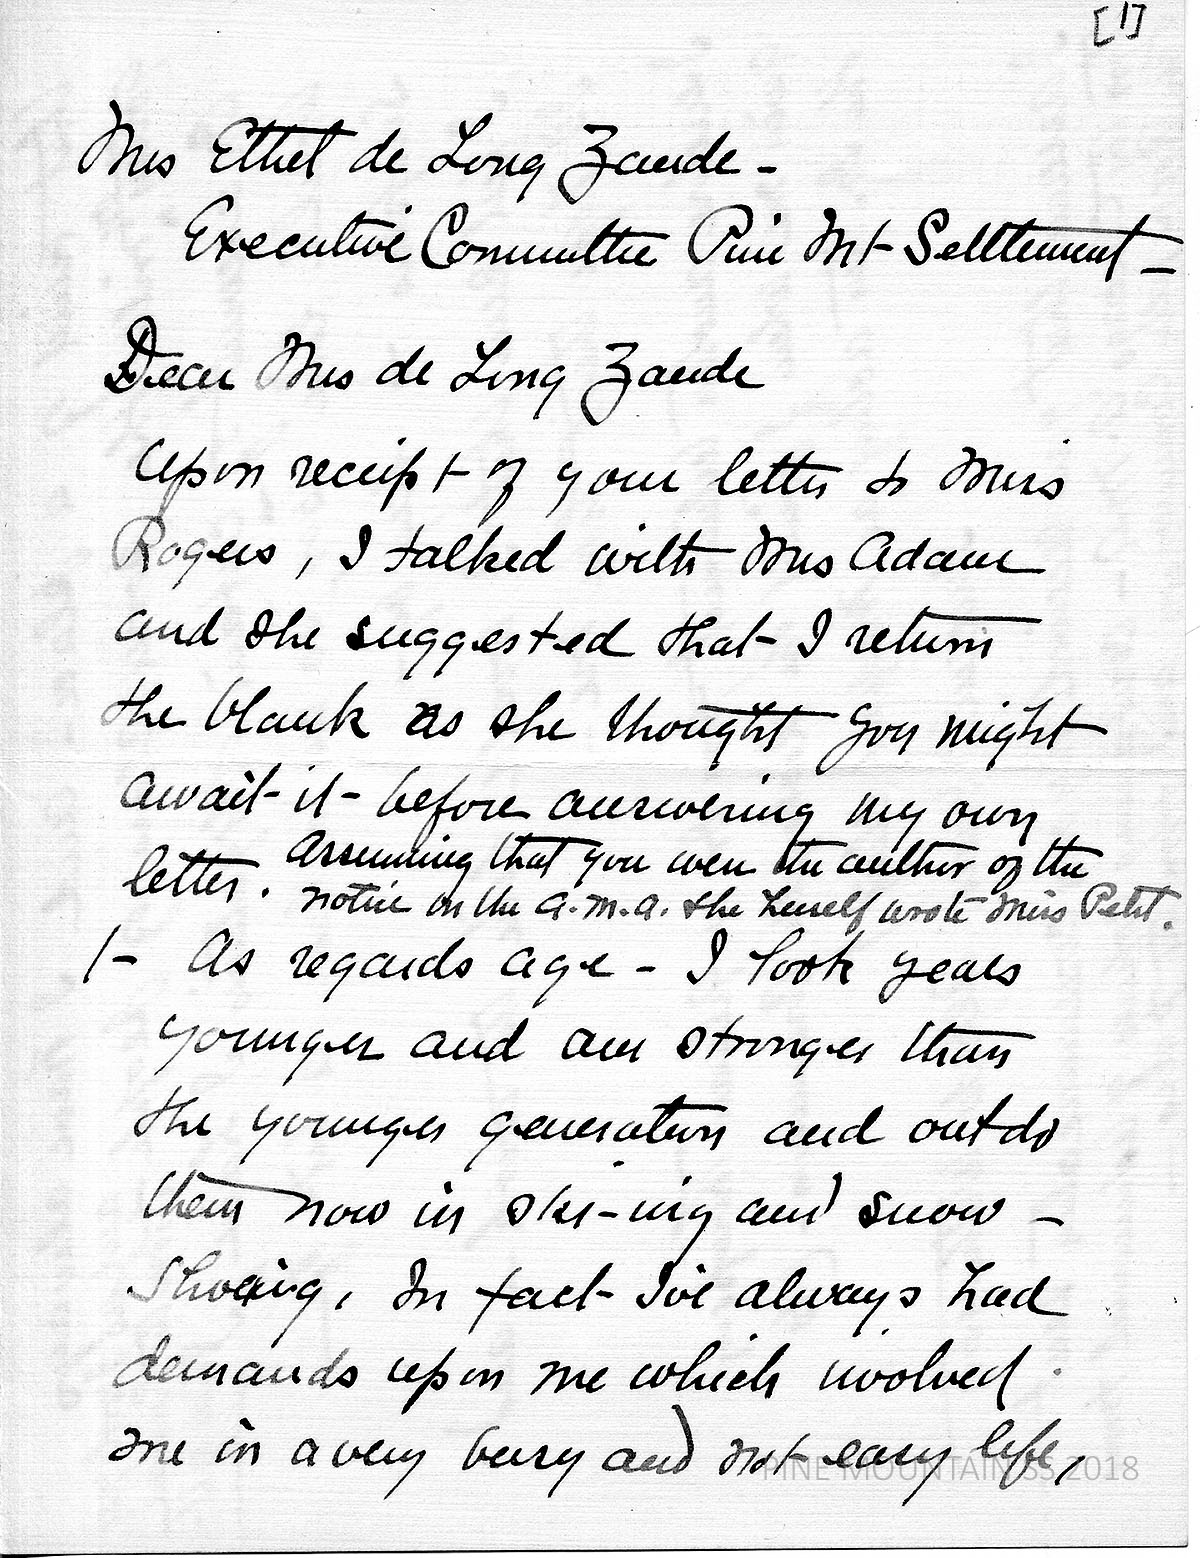 [1]
Mrs Ethel de Long Zande -
Executive Committee Pine Mt Settlement -
Dear Mrs de Long Zande
Upon receipt of your letter to Miss
Rogers, I talked with Mrs Adam
and she suggested that I return
the blank as she thought you might
await it - before answering my own
letter. Assuming that you were the author of the
notice in the A.M.A. she herself wrote Miss Petit.
1- As regards age - I look years
younger and am stronger than
the younger generation and outdo
them now in ski-ing and snow -
shoeing, In fact I've always had
demands upon me which involved
me in a very busy and not easy life,
PINE MOUNTAIN SS 2018